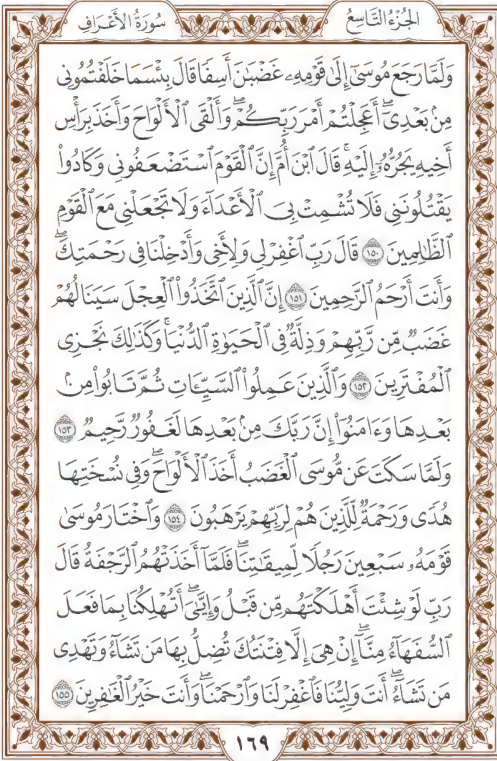 الجُزْءُ التَّاسِعُ
سُورَةُ الأَعْرَافِ
وَلَمَّا رَجَعَ مُوسَىٰٓ إِلَىٰ قَوْمِهِۦ غَضْبَٰنَ أَسِفًا قَالَ بِئْسَمَا خَلَفْتُمُونِي
مِنۢ بَعْدِيٓۖ أَعَجِلْتُمْ أَمْرَ رَبِّكُمْۖ وَأَلْقَى ٱلْأَلْوَاحَ وَأَخَذَ بِرَأْسِ
أَخِيهِ يَجُرُّهُۥٓ إِلَيْهِۚ قَالَ ٱبْنَ أُمَّ إِنَّ ٱلْقَوْمَ ٱسْتَضْعَفُونِي وَكَادُوا۟
يَقْتُلُونَنِي فَلَا تُشْمِتْ بِيَ ٱلْأَعْدَآءَ وَلَا تَجْعَلْنِي مَعَ ٱلْقَوْمِ
ٱلظَّٰلِمِينَ ١٥٠ قَالَ رَبِّ ٱغْفِرْ لِي وَلِأَخِي وَأَدْخِلْنَا فِي رَحْمَتِكَۖ
وَأَنتَ أَرْحَمُ ٱلرَّٰحِمِينَ ١٥١ إِنَّ ٱلَّذِينَ ٱتَّخَذُوا۟ ٱلْعِجْلَ سَيَنَالُهُمْ
غَضَبٌ مِّن رَّبِّهِمْ وَذِلَّةٌ فِي ٱلْحَيَوٰةِ ٱلدُّنْيَاۚ وَكَذَٰلِكَ نَجْزِي
ٱلْمُفْتَرِينَ ١٥٢ وَٱلَّذِينَ عَمِلُوا۟ ٱلسَّيِّـَٔاتِ ثُمَّ تَابُوا۟ مِنۢ
بَعْدِهَا وَءَامَنُوٓا۟ إِنَّ رَبَّكَ مِنۢ بَعْدِهَا لَغَفُورٌ رَّحِيمٌ ١٥٣
وَلَمَّا سَكَتَ عَن مُّوسَى ٱلْغَضَبُ أَخَذَ ٱلْأَلْوَاحَۖ وَفِي نُسْخَتِهَا
هُدًى وَرَحْمَةٌ لِّلَّذِينَ هُمْ لِرَبِّهِمْ يَرْهَبُونَ ١٥٤ وَٱخْتَارَ مُوسَىٰ
قَوْمَهُۥ سَبْعِينَ رَجُلًا لِّمِيقَٰتِنَاۖ فَلَمَّآ أَخَذَتْهُمُ ٱلرَّجْفَةُ قَالَ
رَبِّ لَوْ شِئْتَ أَهْلَكْتَهُم مِّن قَبْلُ وَإِيَّٰيَۖ أَتُهْلِكُنَا بِمَا فَعَلَ
ٱلسُّفَهَآءُ مِنَّآۖ إِنْ هِيَ إِلَّا فِتْنَتُكَ تُضِلُّ بِهَا مَن تَشَآءُ وَتَهْدِي
مَن تَشَآءُۖ أَنتَ وَلِيُّنَا فَٱغْفِرْ لَنَا وَٱرْحَمْنَاۖ وَأَنتَ خَيْرُ ٱلْغَٰفِرِينَ ١٥٥
١٦٩